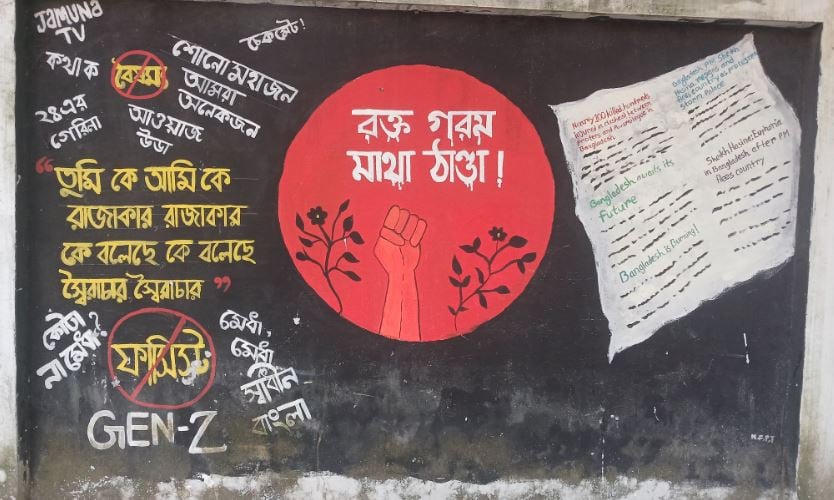 JAMUNA
TV
কথা ক
২৪এর
গেরিলা
বৈষম্য
আওয়াজ
উডা
শোনো মহাজন
আমরা
অনেকজন
চেকমেট!
"তুমি কে আমি কে
রাজাকার রাজাকার
কে বলেছে কে বলেছে
স্বৈরাচার স্বৈরাচার"
কোটা
না মেধা?
ফ্যাসিস্ট
মেধা,
মেধা
স্বাধীন
বাংলা
GEN-Z
রক্ত গরম
মাথা ঠাণ্ডা!
Nearly 100 killed hundreds
injured in clashes between
Bangladesh
Bangladesh awaits its
future
Bangladesh is Burning!
Bangladesh PM Sheikh
Hasina resigns and
flees country as protesters
storm Palace
Sheikh Hasina: Euphoria
in Bangladesh after PM
flees country